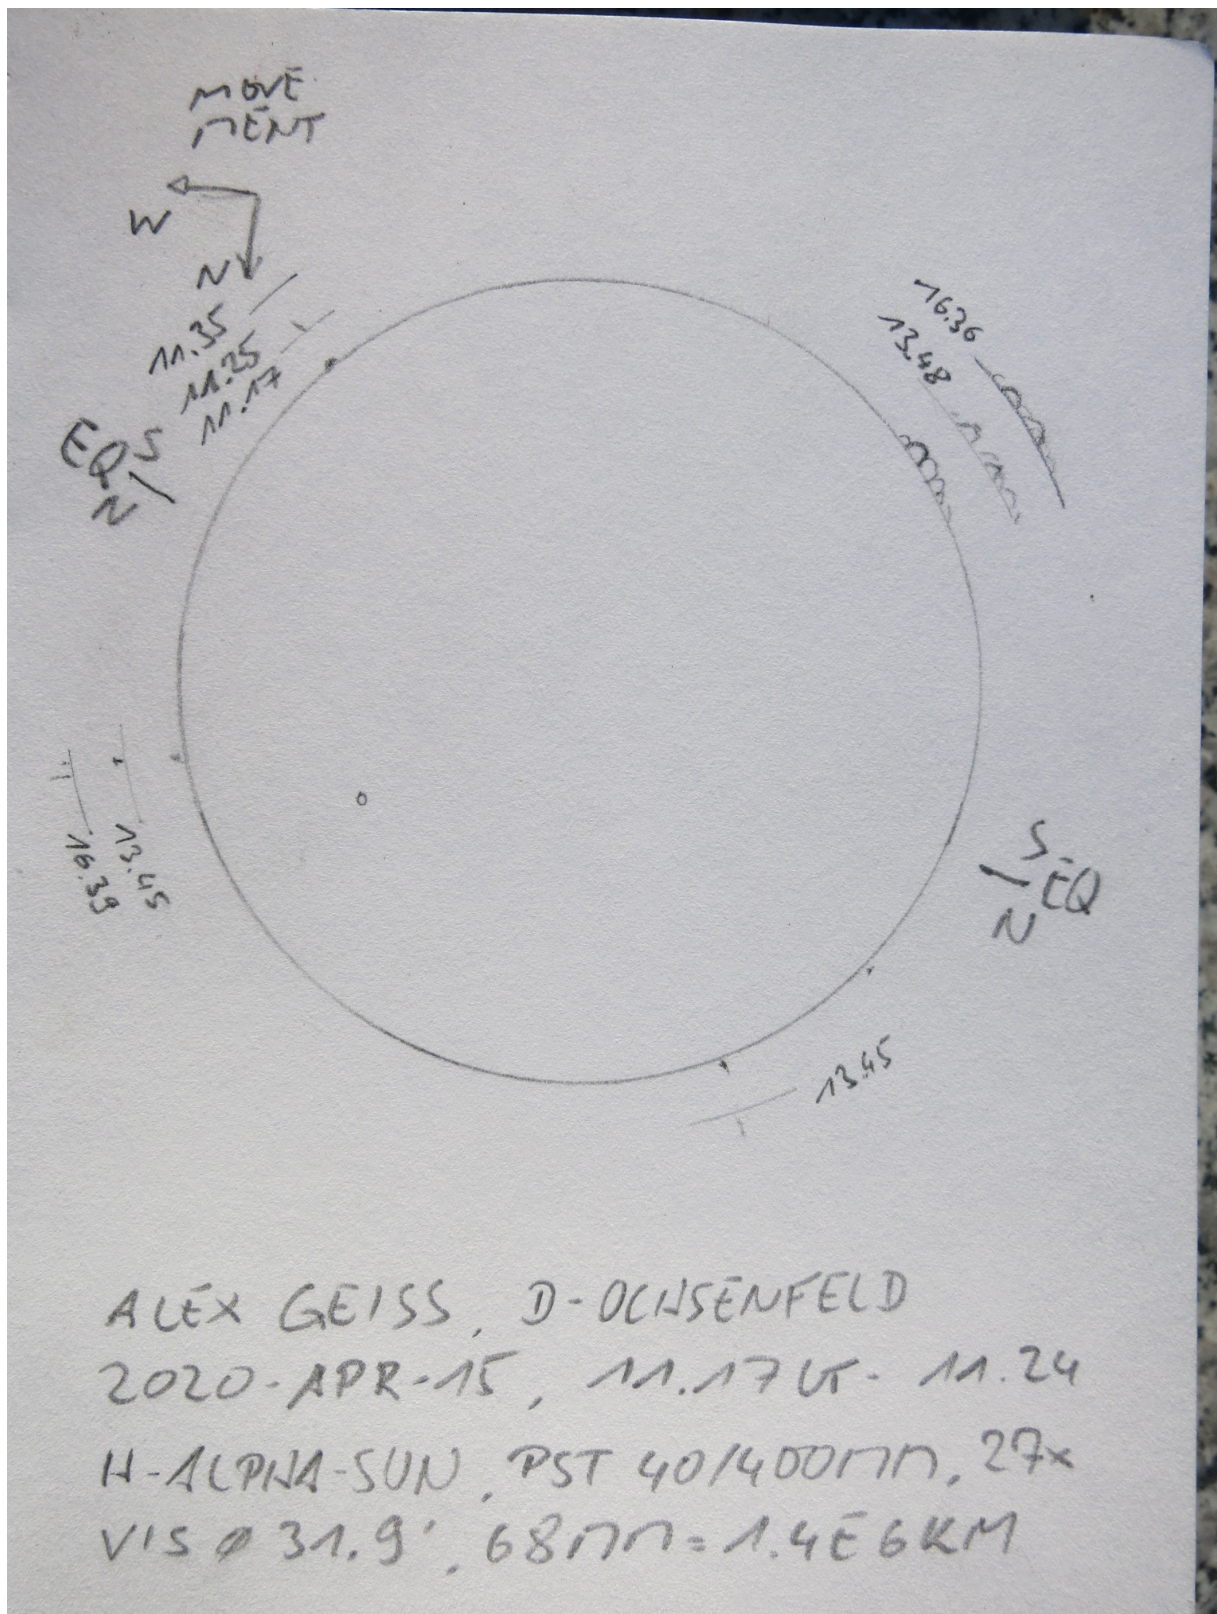 MOVE
MENT
W
N
11.35
11.25
11.17
EQ S
N
16.36
13.48
16.39
13.45
S
EQ
N
13.45
ALEX GEISS, D-OCHSENFELD
2020-APR-15, 11.17 UT - 11.24
H-ALPHA-SUN, PST 40/400MM, 27x
VIS ø 31.9', 68MM = 1.4E6KM